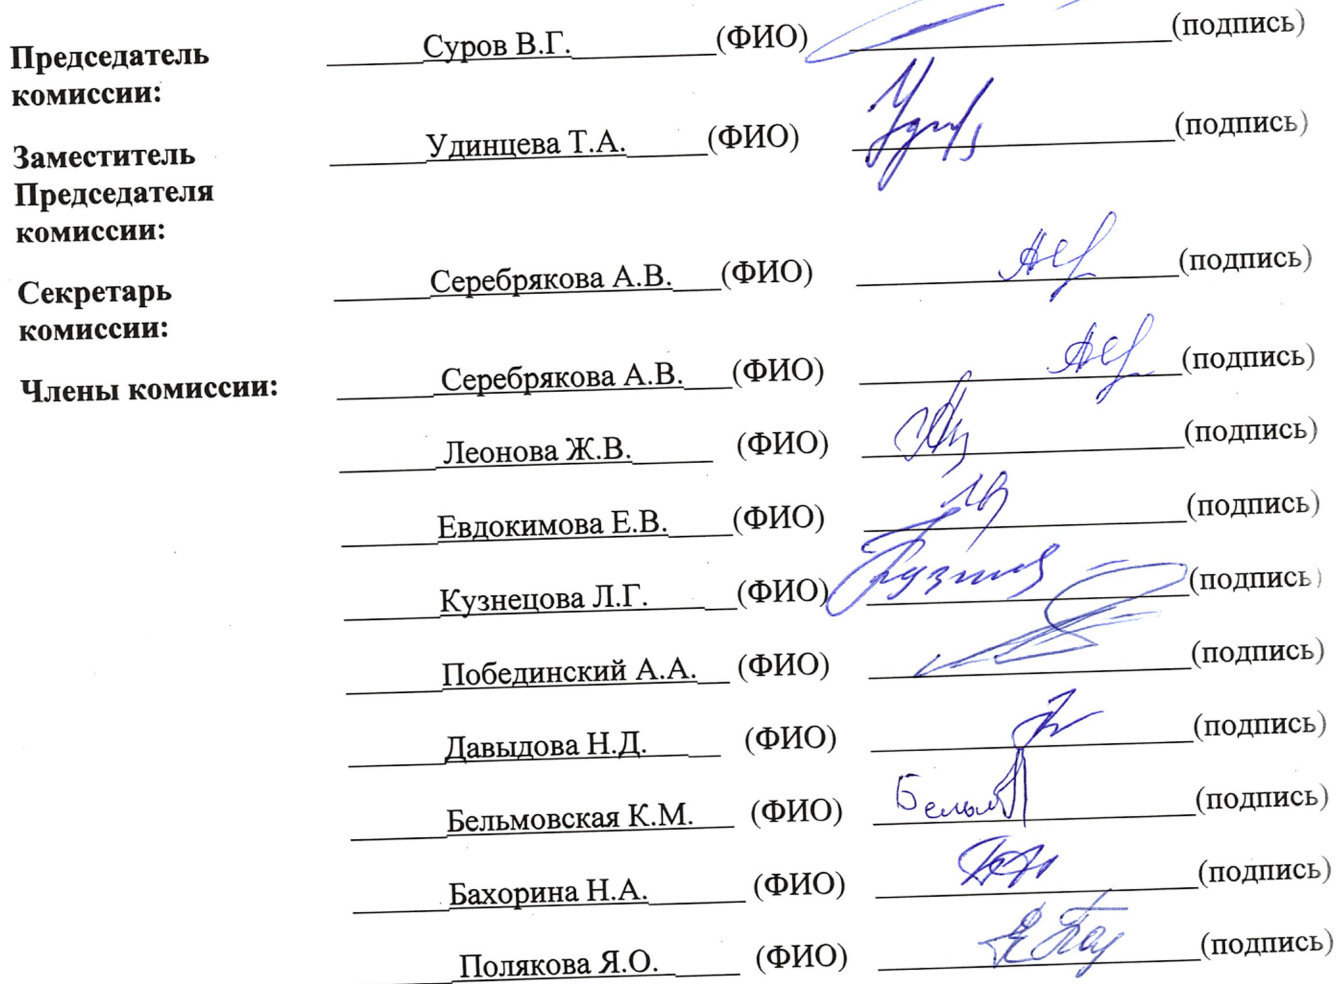 Председатель комиссии: Суров В.Г. (ФИО) (подпись)
Заместитель Председателя комиссии: Удинцева Т.А. (ФИО) (подпись)
Секретарь комиссии: Серебрякова А.В. (ФИО) (подпись)
Члены комиссии: Серебрякова А.В. (ФИО) (подпись)
Леонова Ж.В. (ФИО) (подпись)
Евдокимова Е.В. (ФИО) (подпись)
Кузнецова Л.Г. (ФИО) (подпись)
Побединский А.А. (ФИО) (подпись)
Давыдова Н.Д. (ФИО) (подпись)
Бельмовская К.М. (ФИО) (подпись)
Бахорина Н.А. (ФИО) (подпись)
Полякова Я.О. (ФИО) (подпись)